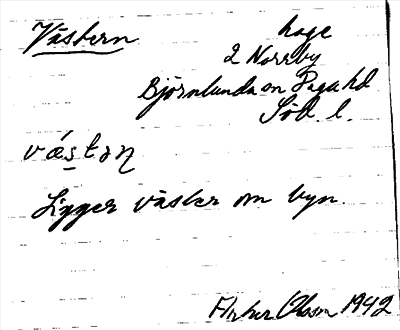 Västern hage
2 Norrby
Björnlunda sn Daga hd
Söd. l.
væstəɳ
Ligger väster om byn.
Arthur Olsson 1942